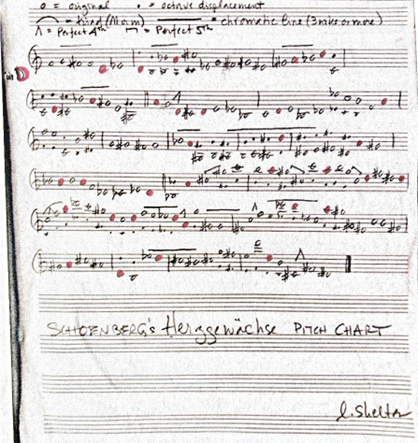 o = original • = octave displacement
= third (M or m) = chromatic line (3 notes or more)
Λ = Perfect 4th = Perfect 5th
SCHOENBERG's Herzgewächse PITCH CHART
L. Shelton